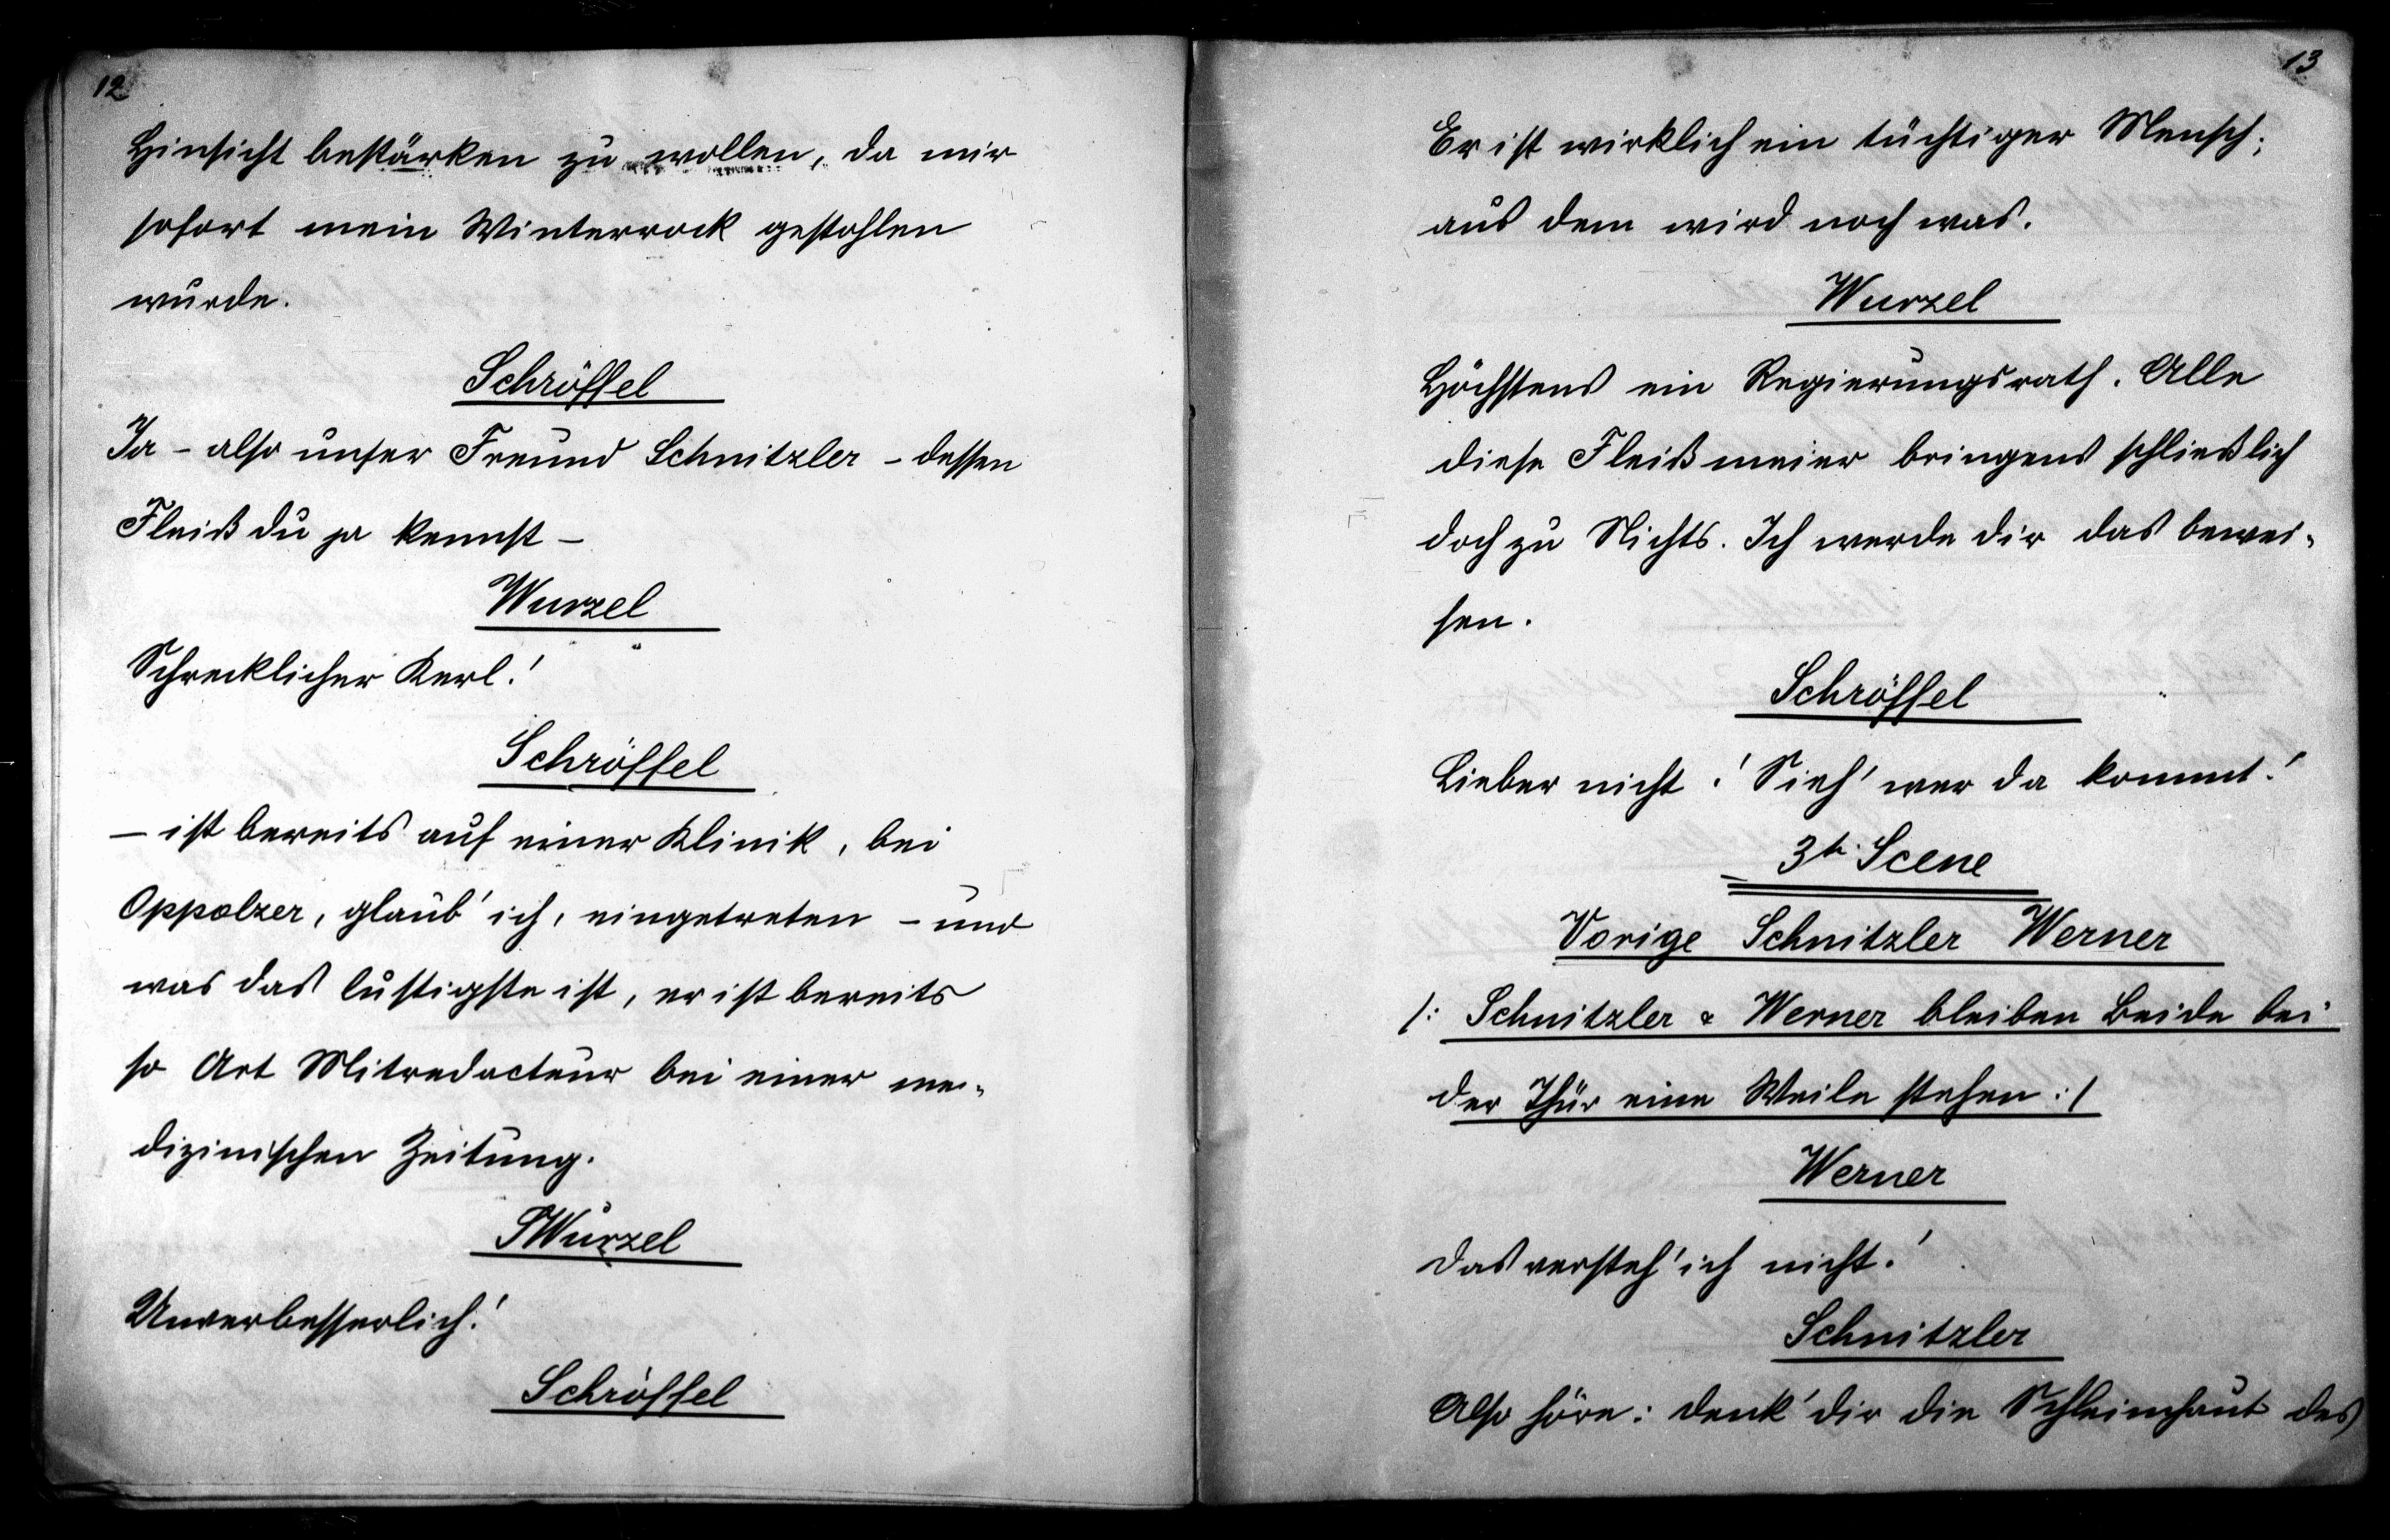 12
Hinsicht bestärken zu wollen, da mir
sofort mein Winterrock gestohlen
wurde.
Schröffel
Ja – also unser Freund Schnitzler – dessen
Fleiß du ja kennst –
Wurzel
Schrecklicher Kerl!
Schröffel
– ist bereits auf einer Klinik, bei
Oppolzer, glaub' ich, eingetreten – und
was das lustigste ist, er ist bereits
so Art Mitredacteur bei einer me-
dizinischen Zeitung.
Wurzel
Unverbesserlich!
Schröffel
13
Er ist wirklich ein tüchtiger Mensch;
aus dem wird noch was.
Wurzel
Höchstens ein Regierungsrath. Alle
diese Fleißmeier bringens schließlich
doch zu Nichts. Ich werde dir das bewei-
sen.
Schröffel
Lieber nicht! Sieh' wer da kommt!
3te Scene
Vorige Schnitzler Werner
/: Schnitzler & Werner bleiben Beide bei
der Thür eine Weile stehen :/
Werner
Das versteh' ich nicht!
Schnitzler
Also höre: denk' dir die Schleimhaut des